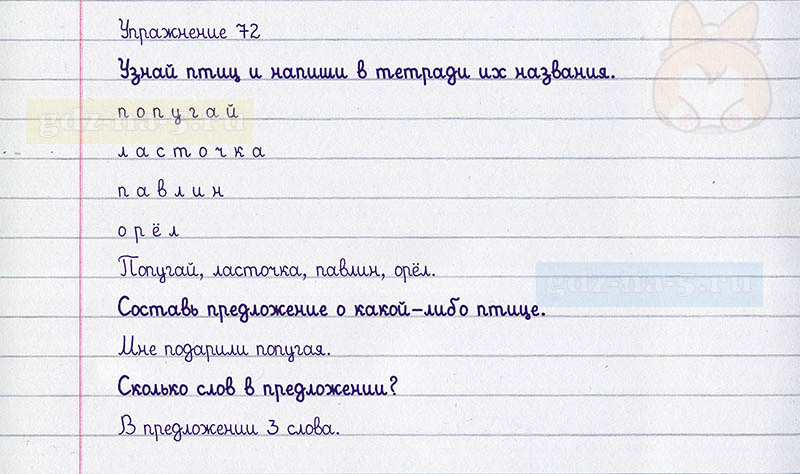 Упражнение 72
Узнай птиц и напиши в тетради их названия.
попугай
gdz-na-5.ru
ласточка
павлин
орёл
Попугай, ласточка, павлин, орёл.
gdz-na-5.ru
Составь предложение о какой-либо птице.
Мне подарили попугая.
Сколько слов в предложении?
В предложении 3 слова.